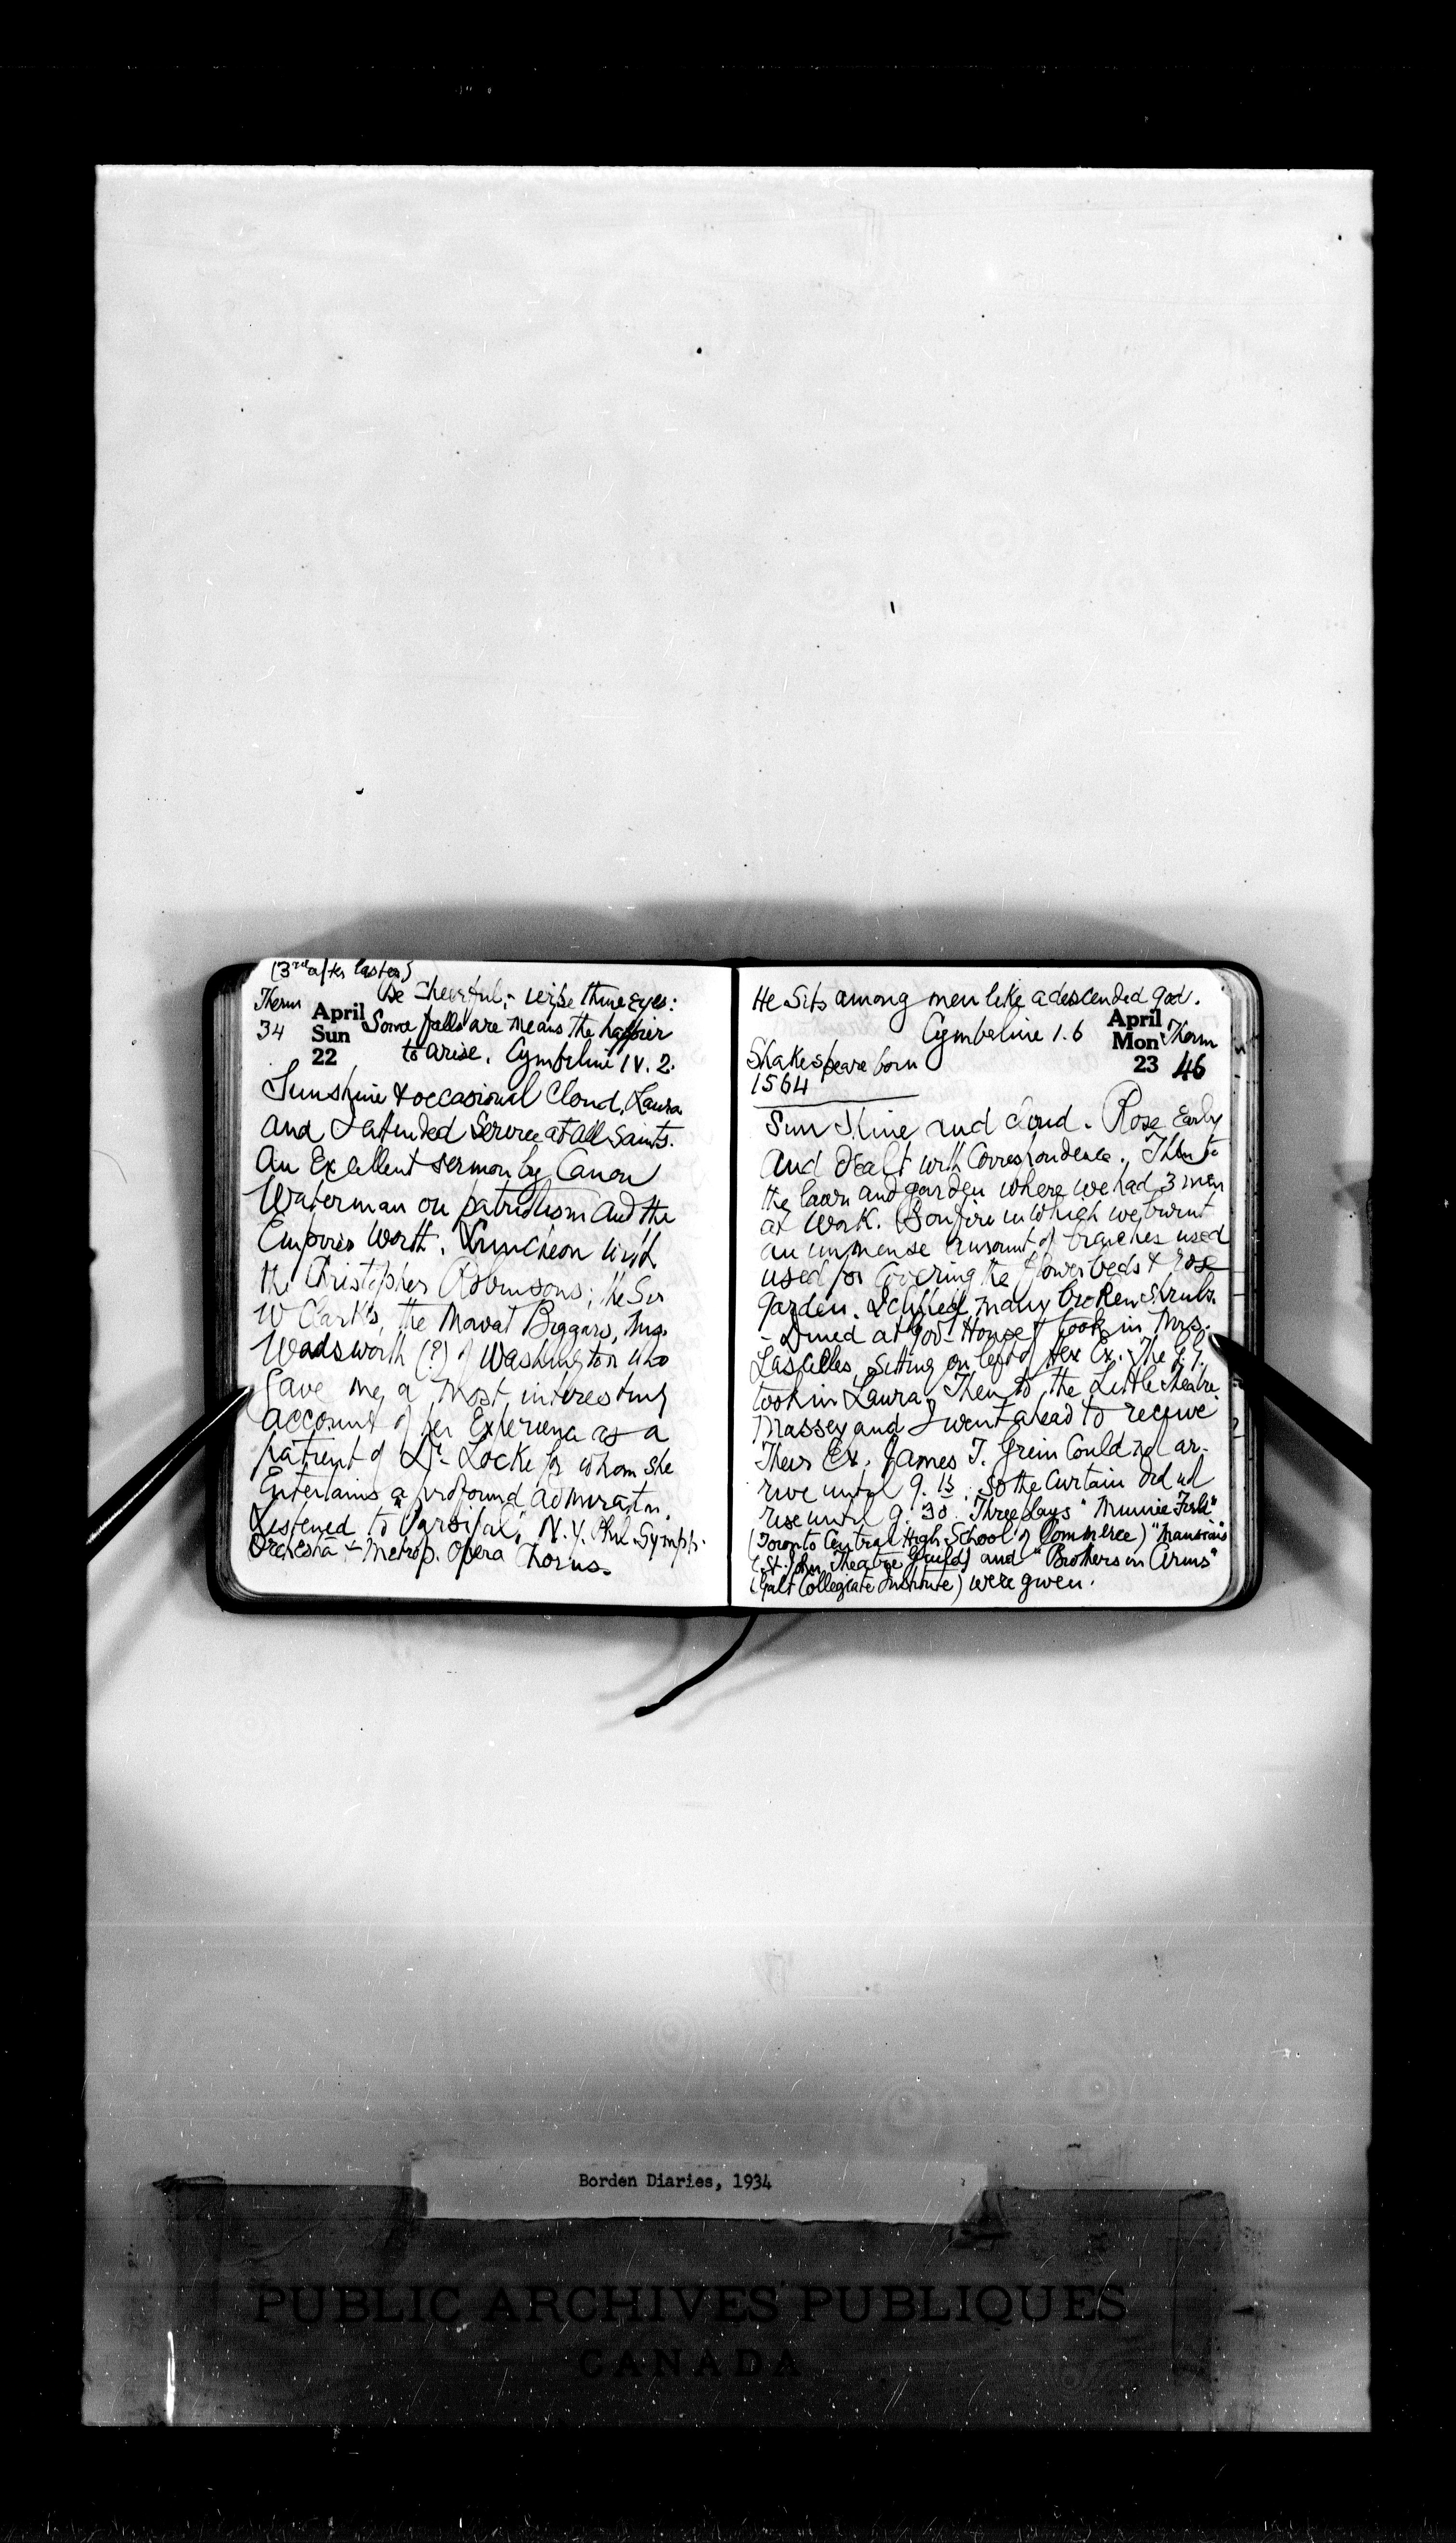 (3rd after Easter)
Be cheerful; wipe thine eyes:
Therm
34
April
Sun
22
Some falls are means the happier
to arise. Cymbeline IV. 2.
Sunshine & occasional Cloud. Laura
and I attended Service at All Saints.
An Excellent sermon by Canon
Waterman on patriotism and the
Empires Worth. Luncheon with
the Christopher Robinsons; the Sir
W Clark's, the Biggars, Mrs.
Wadsworth (?) of Washington who
gave me a most interesting
account of her Experience as a
patient of Dr. Locke for whom she
Entertains a profound admiratn.
Listened to Parsifal, N.Y. Phil. Symph.
Orchestra & Metrop. Opera Chorus.
He Sits among men like a descended god.
Cymbeline 1.6
April
Mon
23
Therm
46
Shakespeare born
1564
Sun Shine and cloud. Rose Early
and dealt with Correspondence. Then to
the lawn and garden where we had 3 men
at Work. Bonfire in which we burnt
an immense amount of branches used
used for Covering the flower beds & rose
garden. I clipped many broken Shrubs.
- Dined at Gov- House & took in Mrs.
Lascelles, sitting on left of Her Ex. The G.G.
took in Laura. Then to the Little Theatre.
Massey and I went ahead to receive
Their Ex. James T. Grein Could not ar-
rive until 9.15. So the Curtain did not
rise until 9.30. Three plays "Minnie Field"
(Toronto Central High School of Commerce) "Nausicaa"
(St. John Theatre Guild) and "Brothers in Arms"
(Galt Collegiate Institute) were given.
Borden Diaries, 1934
PUBLIC ARCHIVES PUBLIQUES
CANADA